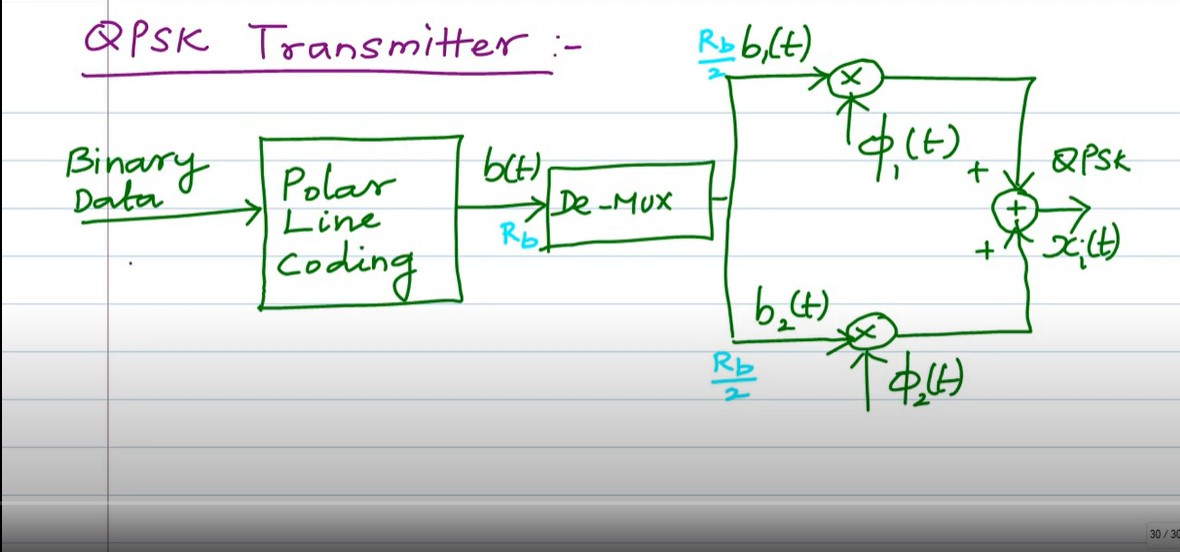 QPSK Transmitter :-
Binary
Data
Polar
Line
Coding
b(t)
Rb
De-MUX
Rb/2 b₁(t)
×
ϕ₁(t)
b₂(t)
Rb/2
×
ϕ₂(t)
+
+
+
QPSK
xᵢ(t)
30 / 30